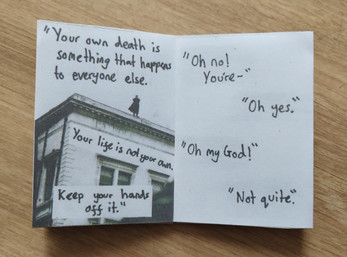 "Your own death is
something that happens
to everyone else.
Your life is not your own.
Keep your hands
off it."
"Oh no!
You're-"
"Oh yes."
"Oh my God!"
"Not quite."